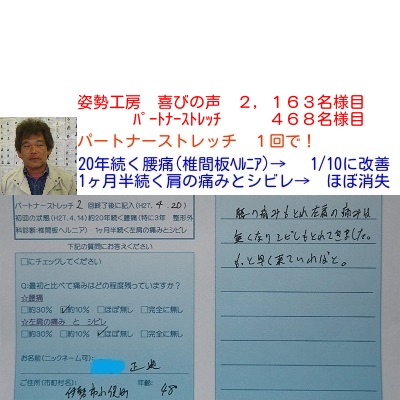 姿勢工房　喜びの声　２，１６３名様目
ﾊﾟｰﾄﾅｰｽﾄﾚｯﾁ　４６８名様目
パートナーストレッチ　１回で！
20年続く腰痛(椎間板ﾍﾙﾆｱ)→　1/10に改善
1ヶ月半続く肩の痛みとシビレ→　ほぼ消失
パートナーストレッチ 2 回目終了後に記入(H27. 4 . 20)
初回の状態(H27.4.14)約20年続く腰痛(特に3年　整形外
科診断:椎間板ヘルニア)　1ヶ月半続く左肩の痛みとシビレ
下記の質問にお答えください
□にチェックしてください
Q:最初と比べて痛みはどの程度残っていますか?
☆腰痛
□約30%　☑約10%　□ほぼ無し　□完全に無し
☆左肩の痛み　と　シビレ
□約30%　□約10%　☑ほぼ無し　□完全に無し
お名前(ニックネーム可)
正典
ご住所(市町村名)　年齢
伊勢市小俣町　48
腰の痛みもとれ左肩の痛みは
無くなりシビレもとれてきました。
もっと早く来ていればと。